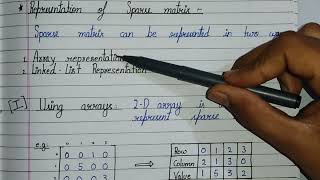 * Representation of Sparse matrix :-
Sparse matrix can be represented in two wa
1. Array representation
2. Linked-List Representation
[I.] Using arrays: 2-D array is
represent sparse
e.g:
0 0 1 0
0 5 0 0
0 0 0 3
⇒
Row 0 1 2 3
Column 2 1 3 0
Value 1 5 3 2